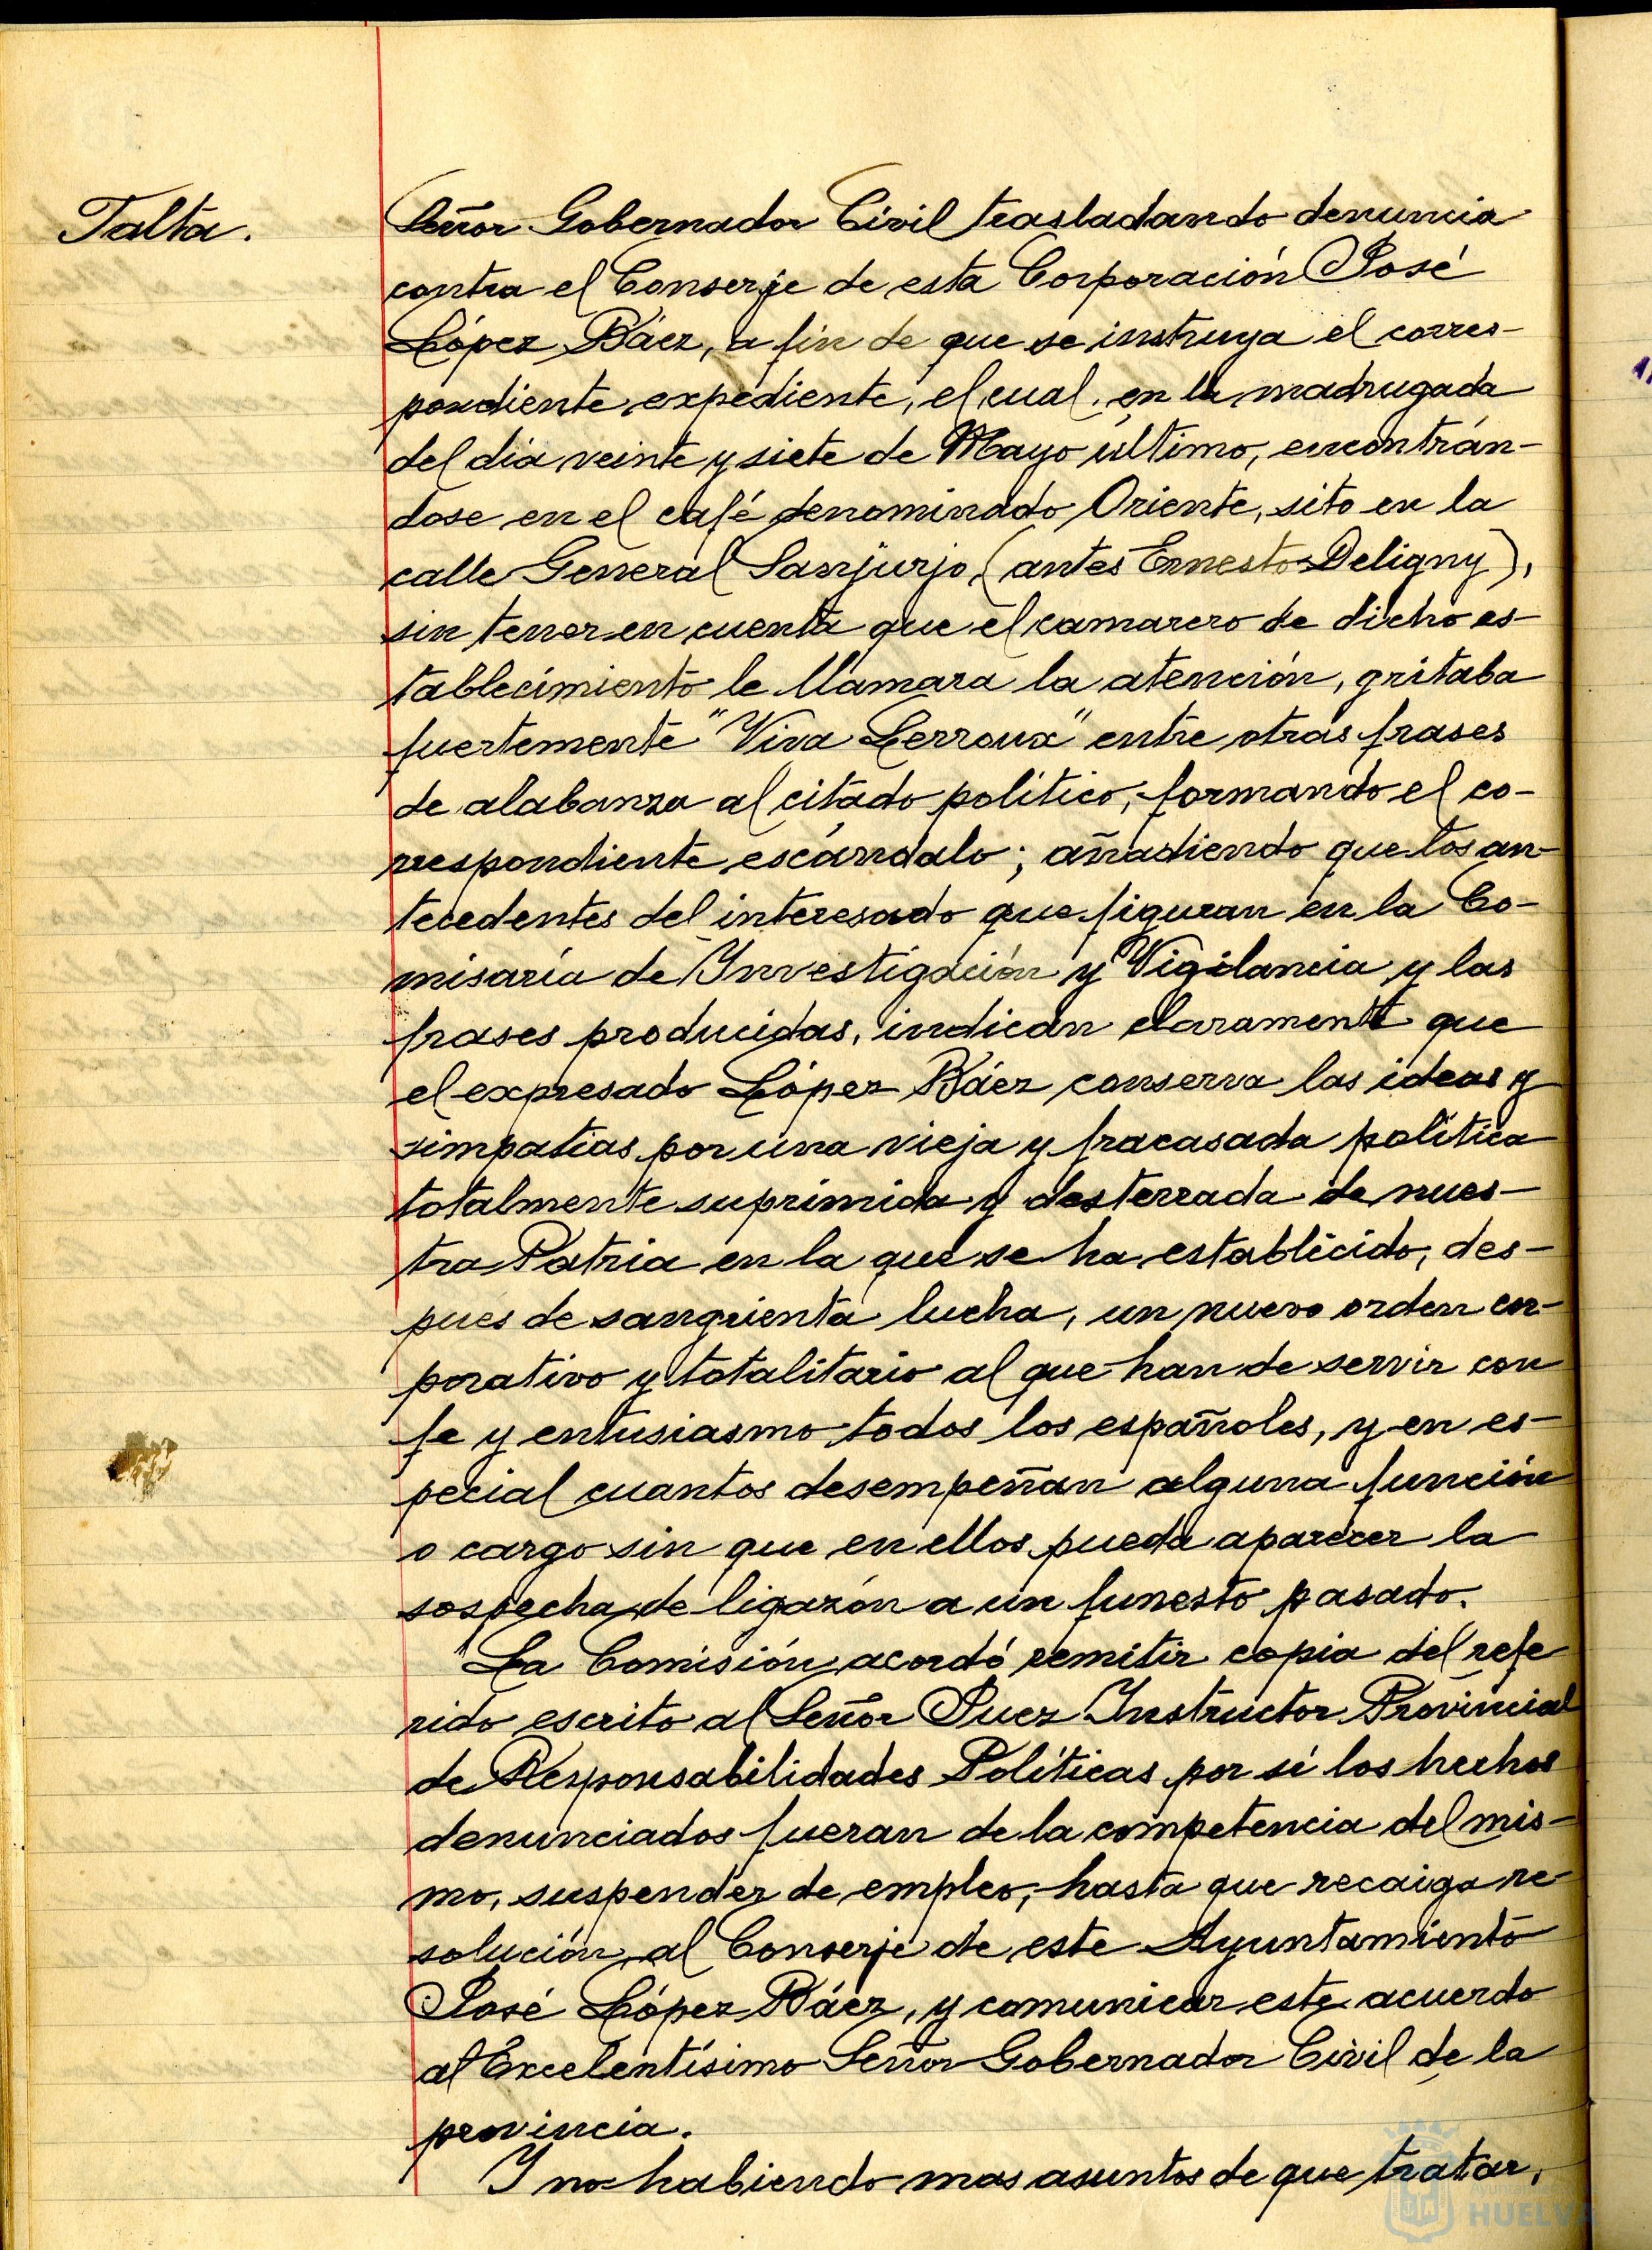 Falta.
Señor Gobernador Civil trasladando denuncia
contra el Conserje de esta Corporación José
López Báez, a fin de que se instruya el corres-
pondiente expediente, el cual, en la madrugada
del dia veinte y siete de Mayo último, encontrán-
dose en el café denominado Oriente, sito en la
calle General Sanjurjo, (antes Ernesto Deligny),
sin tener en cuenta que el camarero de dicho es-
tablecimiento le llamara la atención, gritaba
fuertemente "Viva Lerroux" entre otras frases
de alabanza al citado político, formando el co-
rrespondiente escándalo; añadiendo que los an-
tecedentes del interesado que figuran en la Co-
misaría de Investigación y Vigilancia y las
frases producidas, indican claramente que
el expresado López Báez conserva las ideas y
simpatias por una vieja y fracasada política
totalmente suprimida y desterrada de nues-
tra Patria en la que se ha establecido, des-
pués de sangrienta lucha, un nuevo orden cor-
porativo y totalitario al que han de servir con
fe y entusiasmo todos los españoles, y en es-
pecial cuantos desempeñan alguna función
o cargo sin que en ellos pueda aparecer la
sospecha de ligazón a un funesto pasado.
La Comisión acordó remitir copia del refe
rido escrito al Señor Juez Instructor Provincial
de Responsabilidades Políticas por si los hechos
denunciados fueran de la competencia del mis-
mo, suspender de empleo, hasta que recaiga re
solución, al Conserje de este Ayuntamiento
José López Báez, y comunicar este acuerdo
al Excelentísimo Señor Gobernador Civil de la
provincia.
Y no habiendo mas asuntos de que tratar,
Ayuntamiento
HUELVA